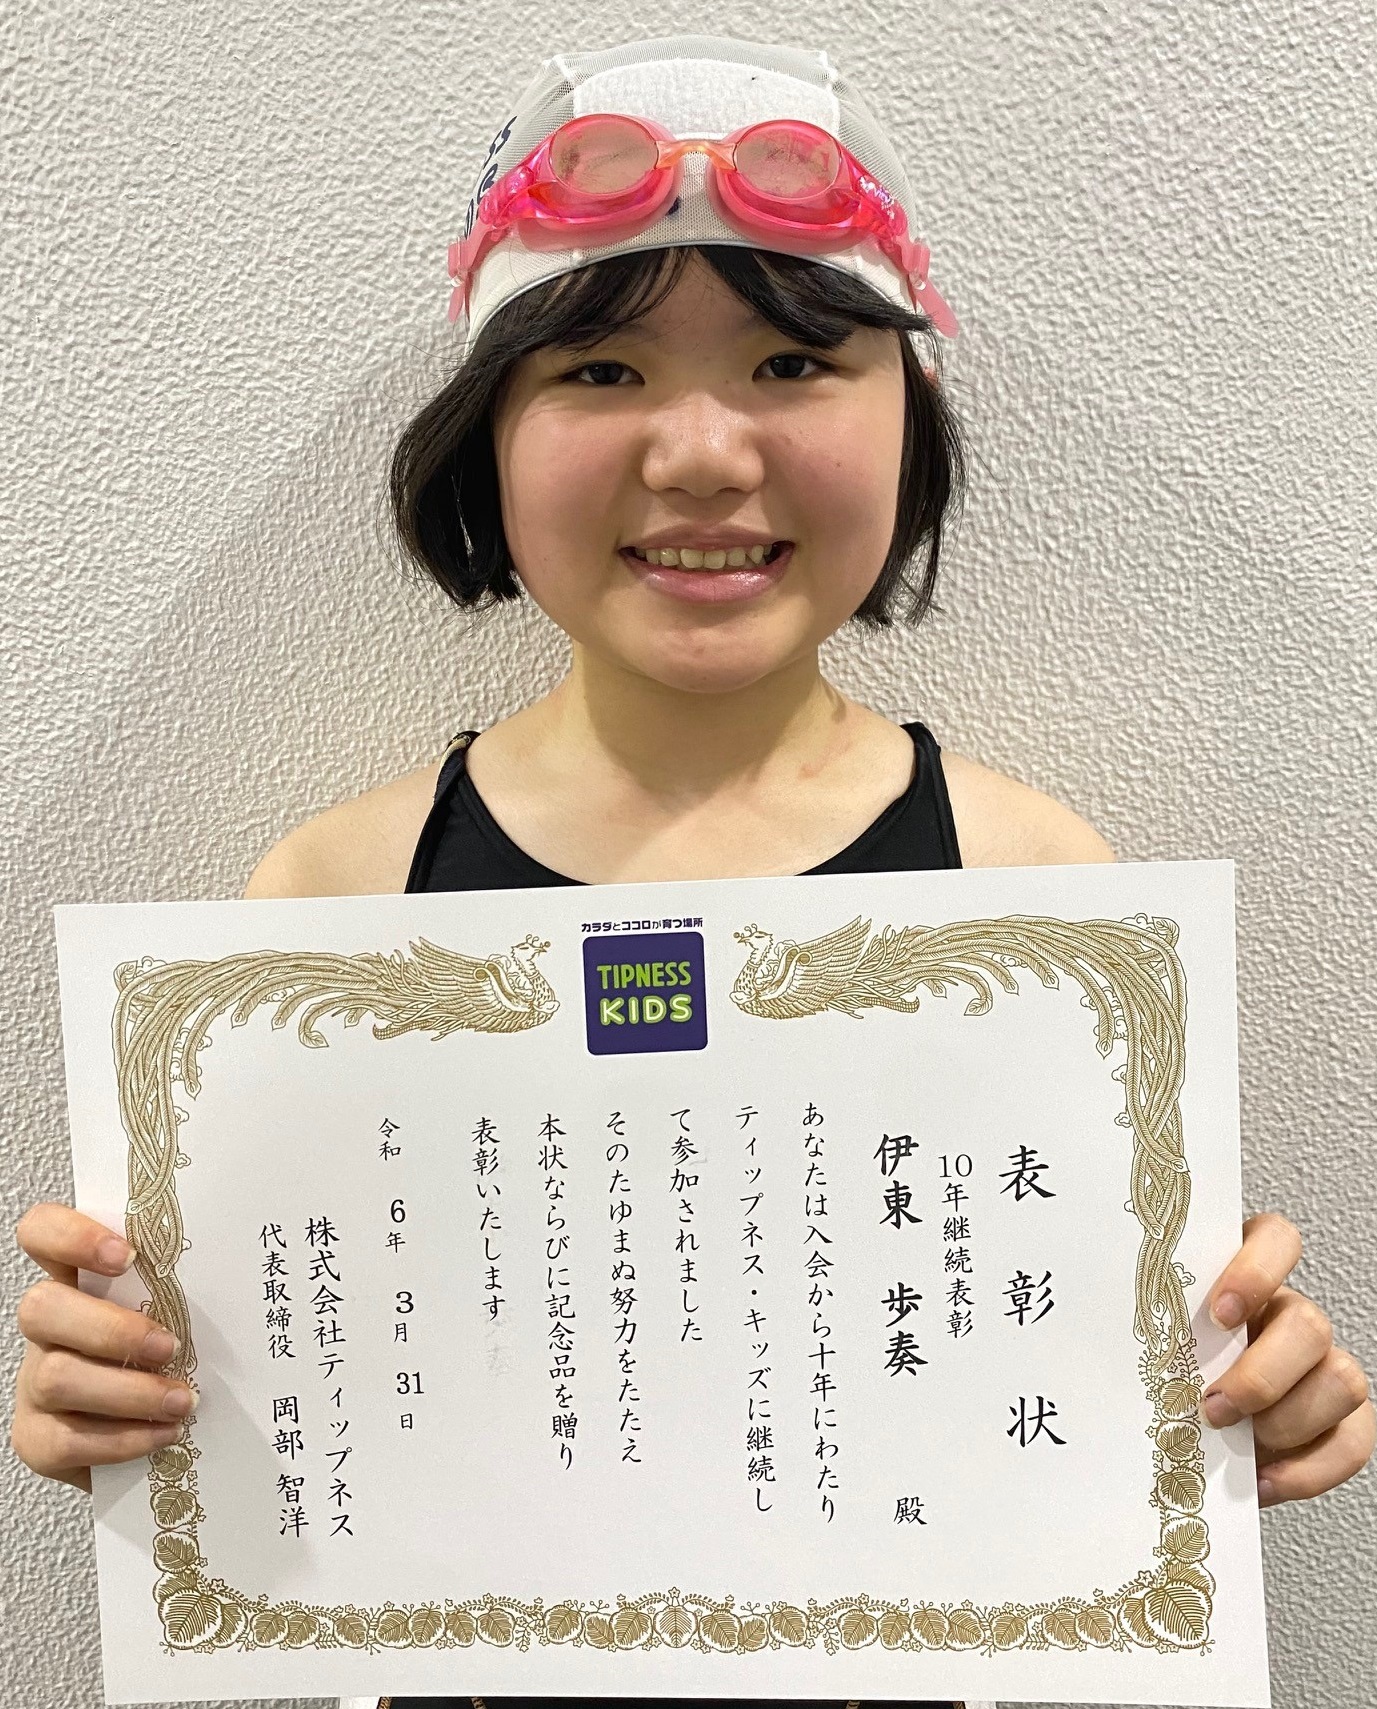 カラダとココロが育つ場所
TIPNESS
KIDS
表彰状
10年継続表彰
伊東 歩奏 殿
あなたは入会から十年にわたり
ティップネス・キッズに継続し
て参加されました
そのたゆまぬ努力をたたえ
本状ならびに記念品を贈り
表彰いたします
令和 6年 3月 31日
株式会社ティップネス
代表取締役 岡部 智洋